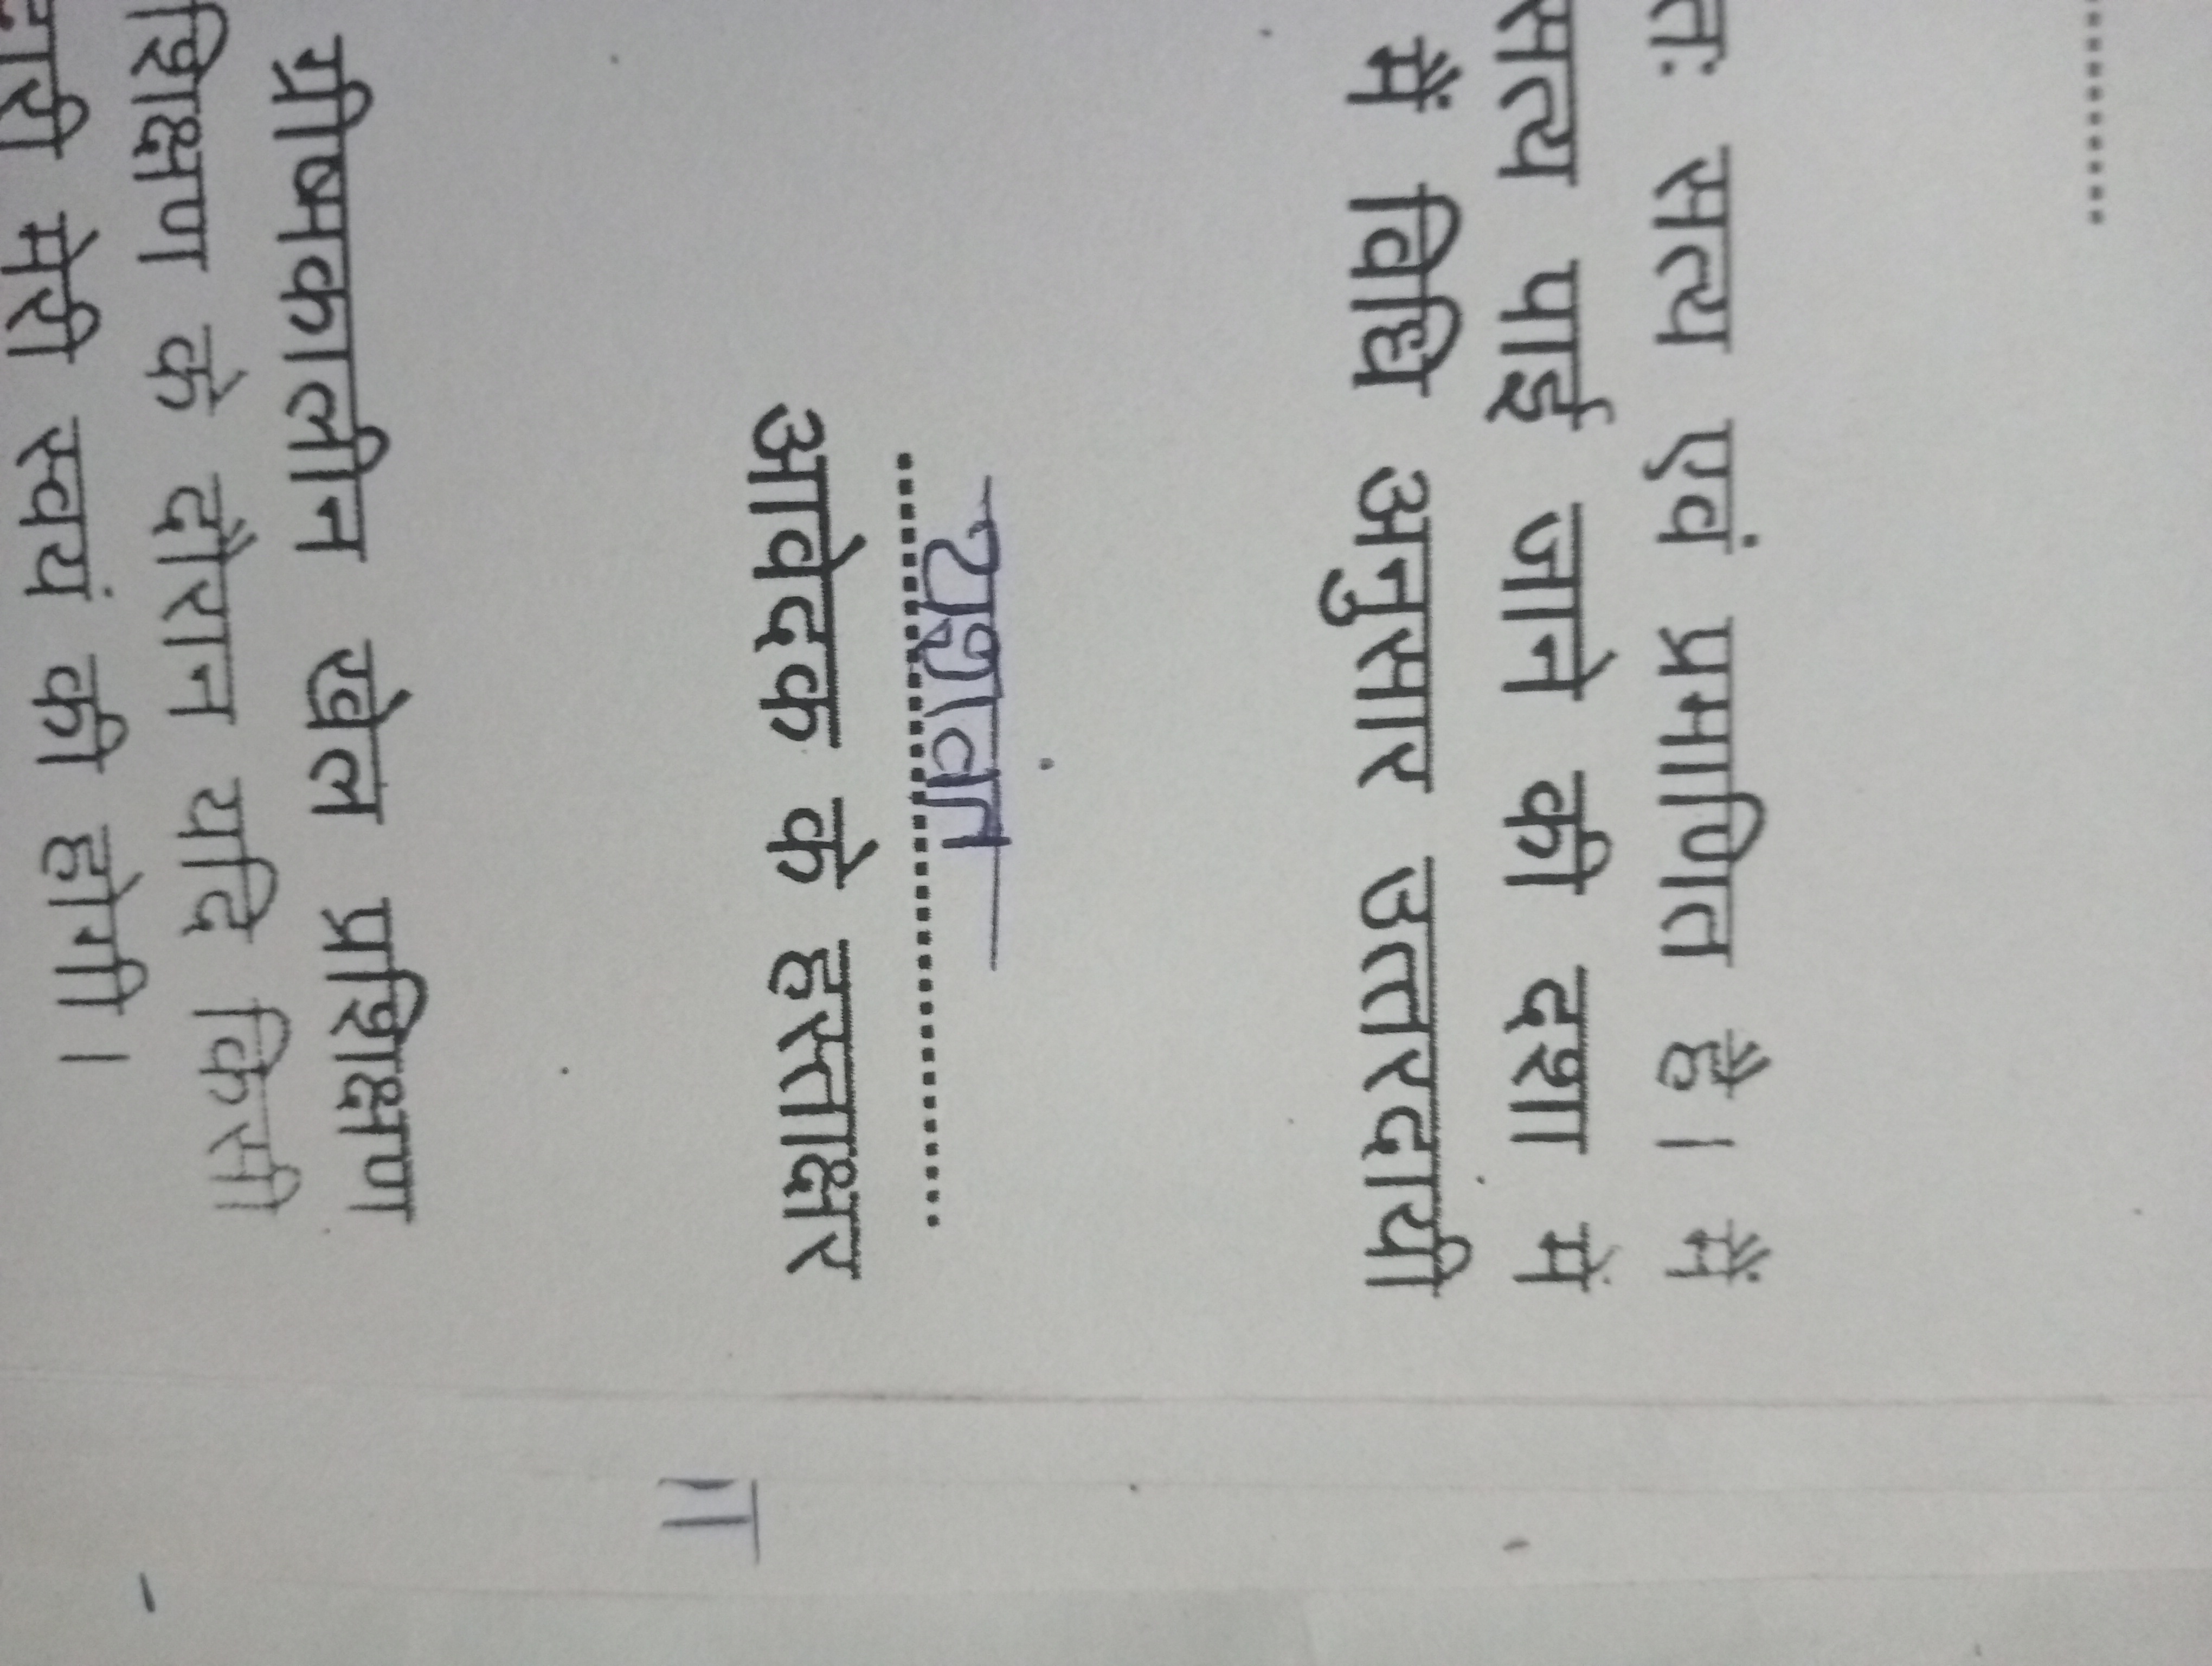 ..........
तः सत्य एवं प्रमाणित है। मैं
सत्य पाई जाने की दशा में
में विधि अनुसार उत्तरदायी
यशवंत
आवेदक के हस्ताक्षर
ग्रीष्मकालीन खेल प्रशिक्षण
शिक्षण के दौरान यदि किसी
मेरी स्वयं की होगी।